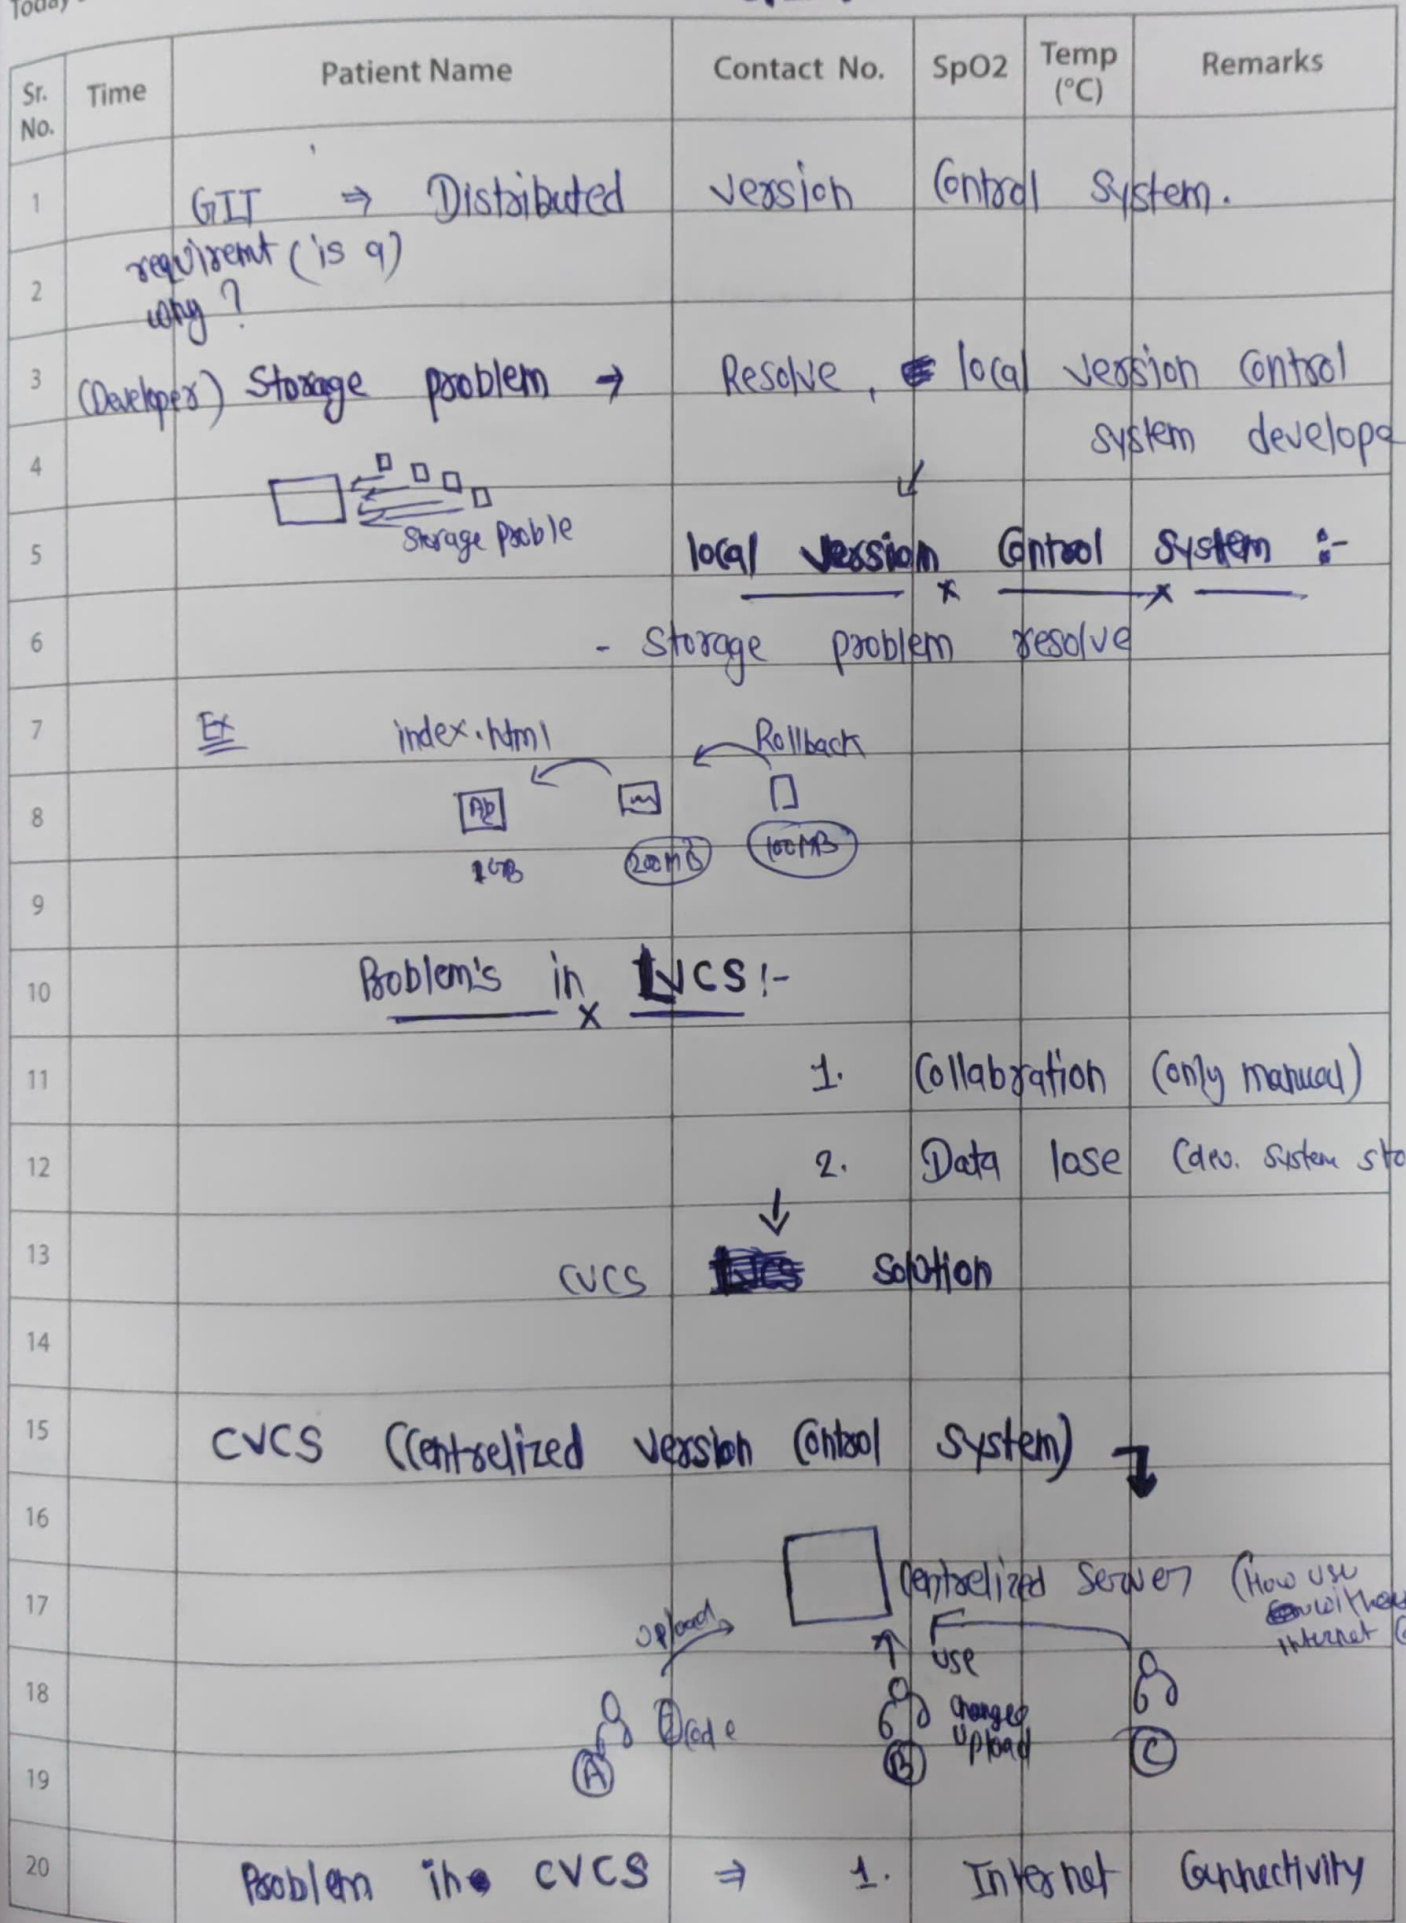 Today
Sr. No. Time Patient Name Contact No. SpO2 Temp (°C) Remarks
1 GIT ⇒ Distributed version Control System.
requiremt (is a)
2 why ?
3 (Developer) Storage problem → Resolve, local version control
4 system develope
Storage Proble
5 local version Control System :-
6 - Storage problem resolve
7 Ex index.html Rollback
8 200MB 100MB
9
10 Problem's in LVCS :-
11 1. Collabration (only manual)
12 2. Data lose (dev. system sto
13 CVCS solution
14
15 CVCS (Centrelized version Control system)
16
17 Centrelized Server (How use
upload internet
use
18 code changes
upload
19 A B C
20 Problem in CVCS ⇒ 1. Internet Connectivity